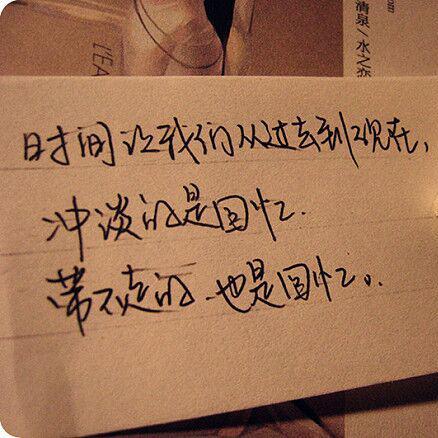 清泉/水之恋
LEA
时间让我们从过去到现在,
冲淡的是回忆.
带不走的.也是回忆。